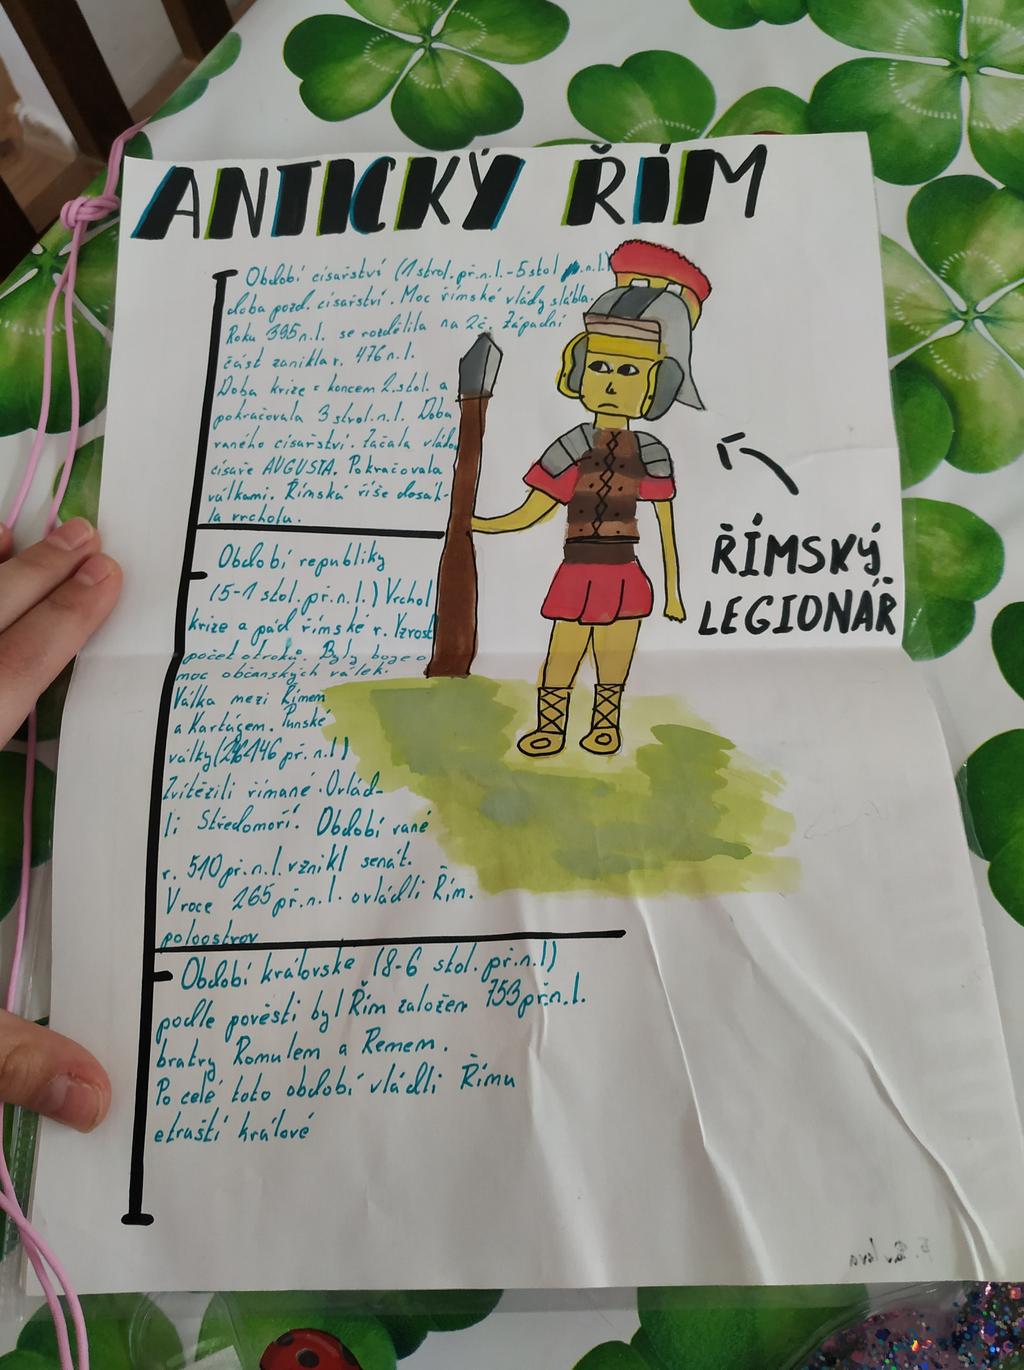 ANTICKÝ ŘÍM
Období císařství (1 strol.př.n.l.-5 stol .n.l.)
doba pozd. císařství. Moc římské vlády slábla.
Roku 395 n.l. se rozdělila na 2č. Západní
část zanikla r. 476 n.l.
Doba krize z koncem 2.stol. a
pokračovala 3 strol.n.l. Doba
raného císařství. Začala vládou
císaře AUGUSTA. Pokračovala
válkami. Římská říše dosáh-
la vrcholu.
Období republiky
(5-1 stol.př.n.l.) Vrchol
krize a pád římské r. Vzrost
počet otroků. Byly boje o
moc občanských válek.
Válka mezi Římem
a Kartágem. Punské
války (146 př.n.l)
Zvítězili římané. Ovlád-
li Středomoří. Období rané
r. 510 př.n.l. vznikl senát.
V roce 265 př.n.l. ovládli Řím.
poloostrov
Období královske (8-6 stol. př.n.l)
podle pověsti byl Řím založen 753 př.n.l.
bratry Romulem a Remem.
Po celé toto období vládli Římu
etruští králové
ŘÍMSKÝ
LEGIONÁŘ